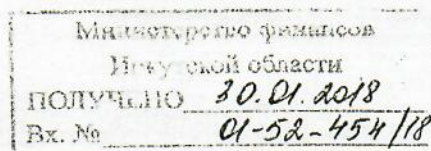 Министерство финансов
Иркутской области
ПОЛУЧЕНО 30.01.2018
Вх. № 01-52-454/18